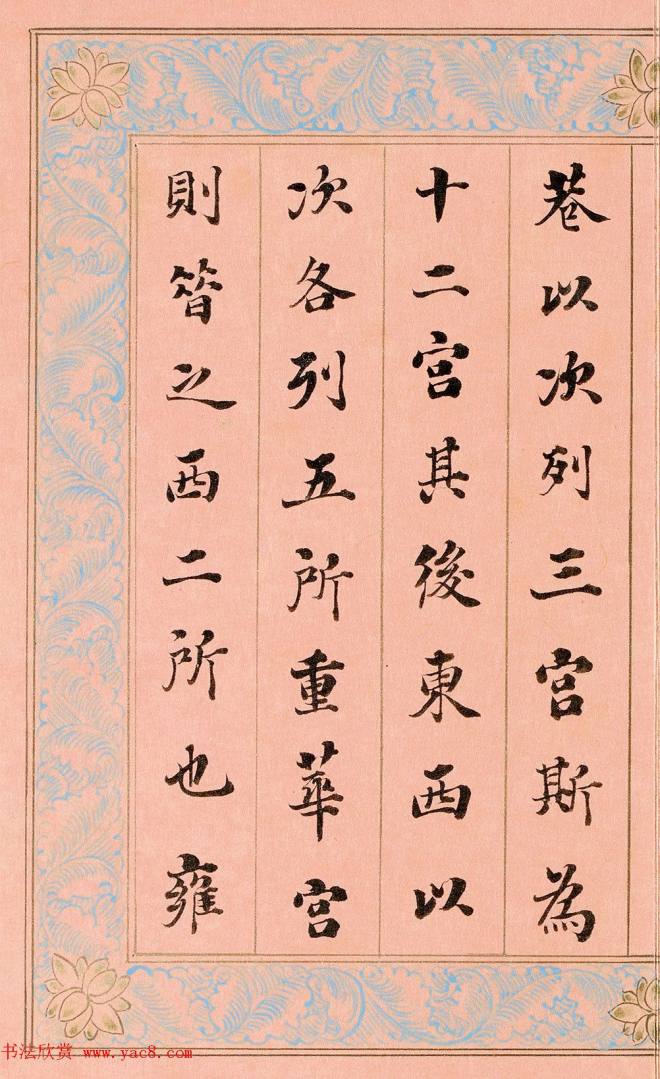 巷以次列三宫斯為
十二宫其後東西以
次各列五所重華宫
則昝之西二所也雍
书法欣赏 www.yac8.com